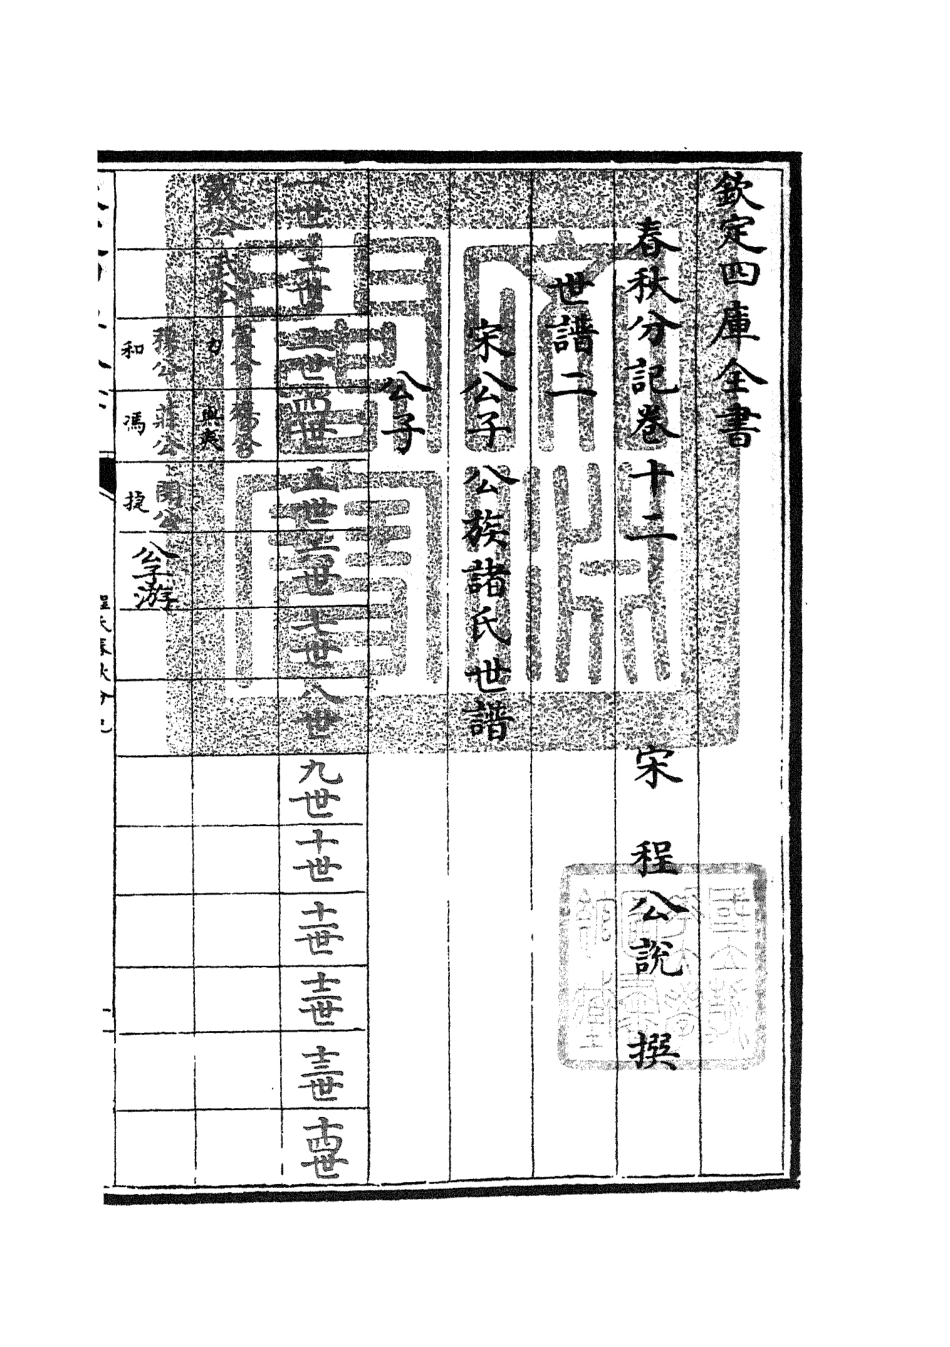 欽定四庫全書
春秋分記卷十二
宋 程公說 撰
世譜二
宋公子公族諸氏世譜
公子
一世
二世
三世
四世
五世
六世
七世
八世
九世
十世
十一世
十二世
十三世
十四世
戴公
武公
宣公
力
殤公
與夷
穆公
和
莊公
馮
閔公
捷
公子游